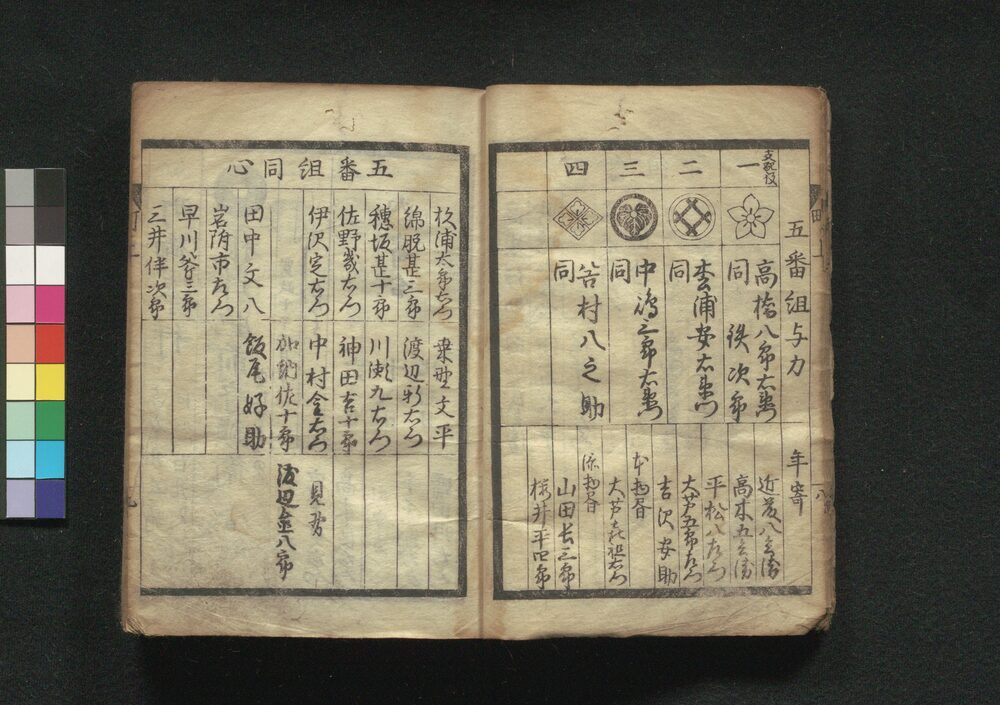 五番組与力
年寄
支配役
一
高橋八郎右衛門
同 鉄次郎
二
松浦安右衛門
同
三
中嶋三郎右衛門
同
四
笘村八之助
同
近藤八
高木五
平松八左衛門
大芦五郎左衛門
吉沢安助
本物書
大芦
添物書
山田長三郎
桜井平四郎
五番組同心
杉浦太郎右衛門
綿脱甚三郎
穂坂甚十郎
佐野幾右衛門
伊沢定右衛門
田中文八
岩附市右衛門
早川
三井伴次郎
文平
渡辺新右衛門
川瀬九右衛門
神田吉十郎
中村金右衛門
加納佐十郎
飯尾好助
見習
渡辺金八郎